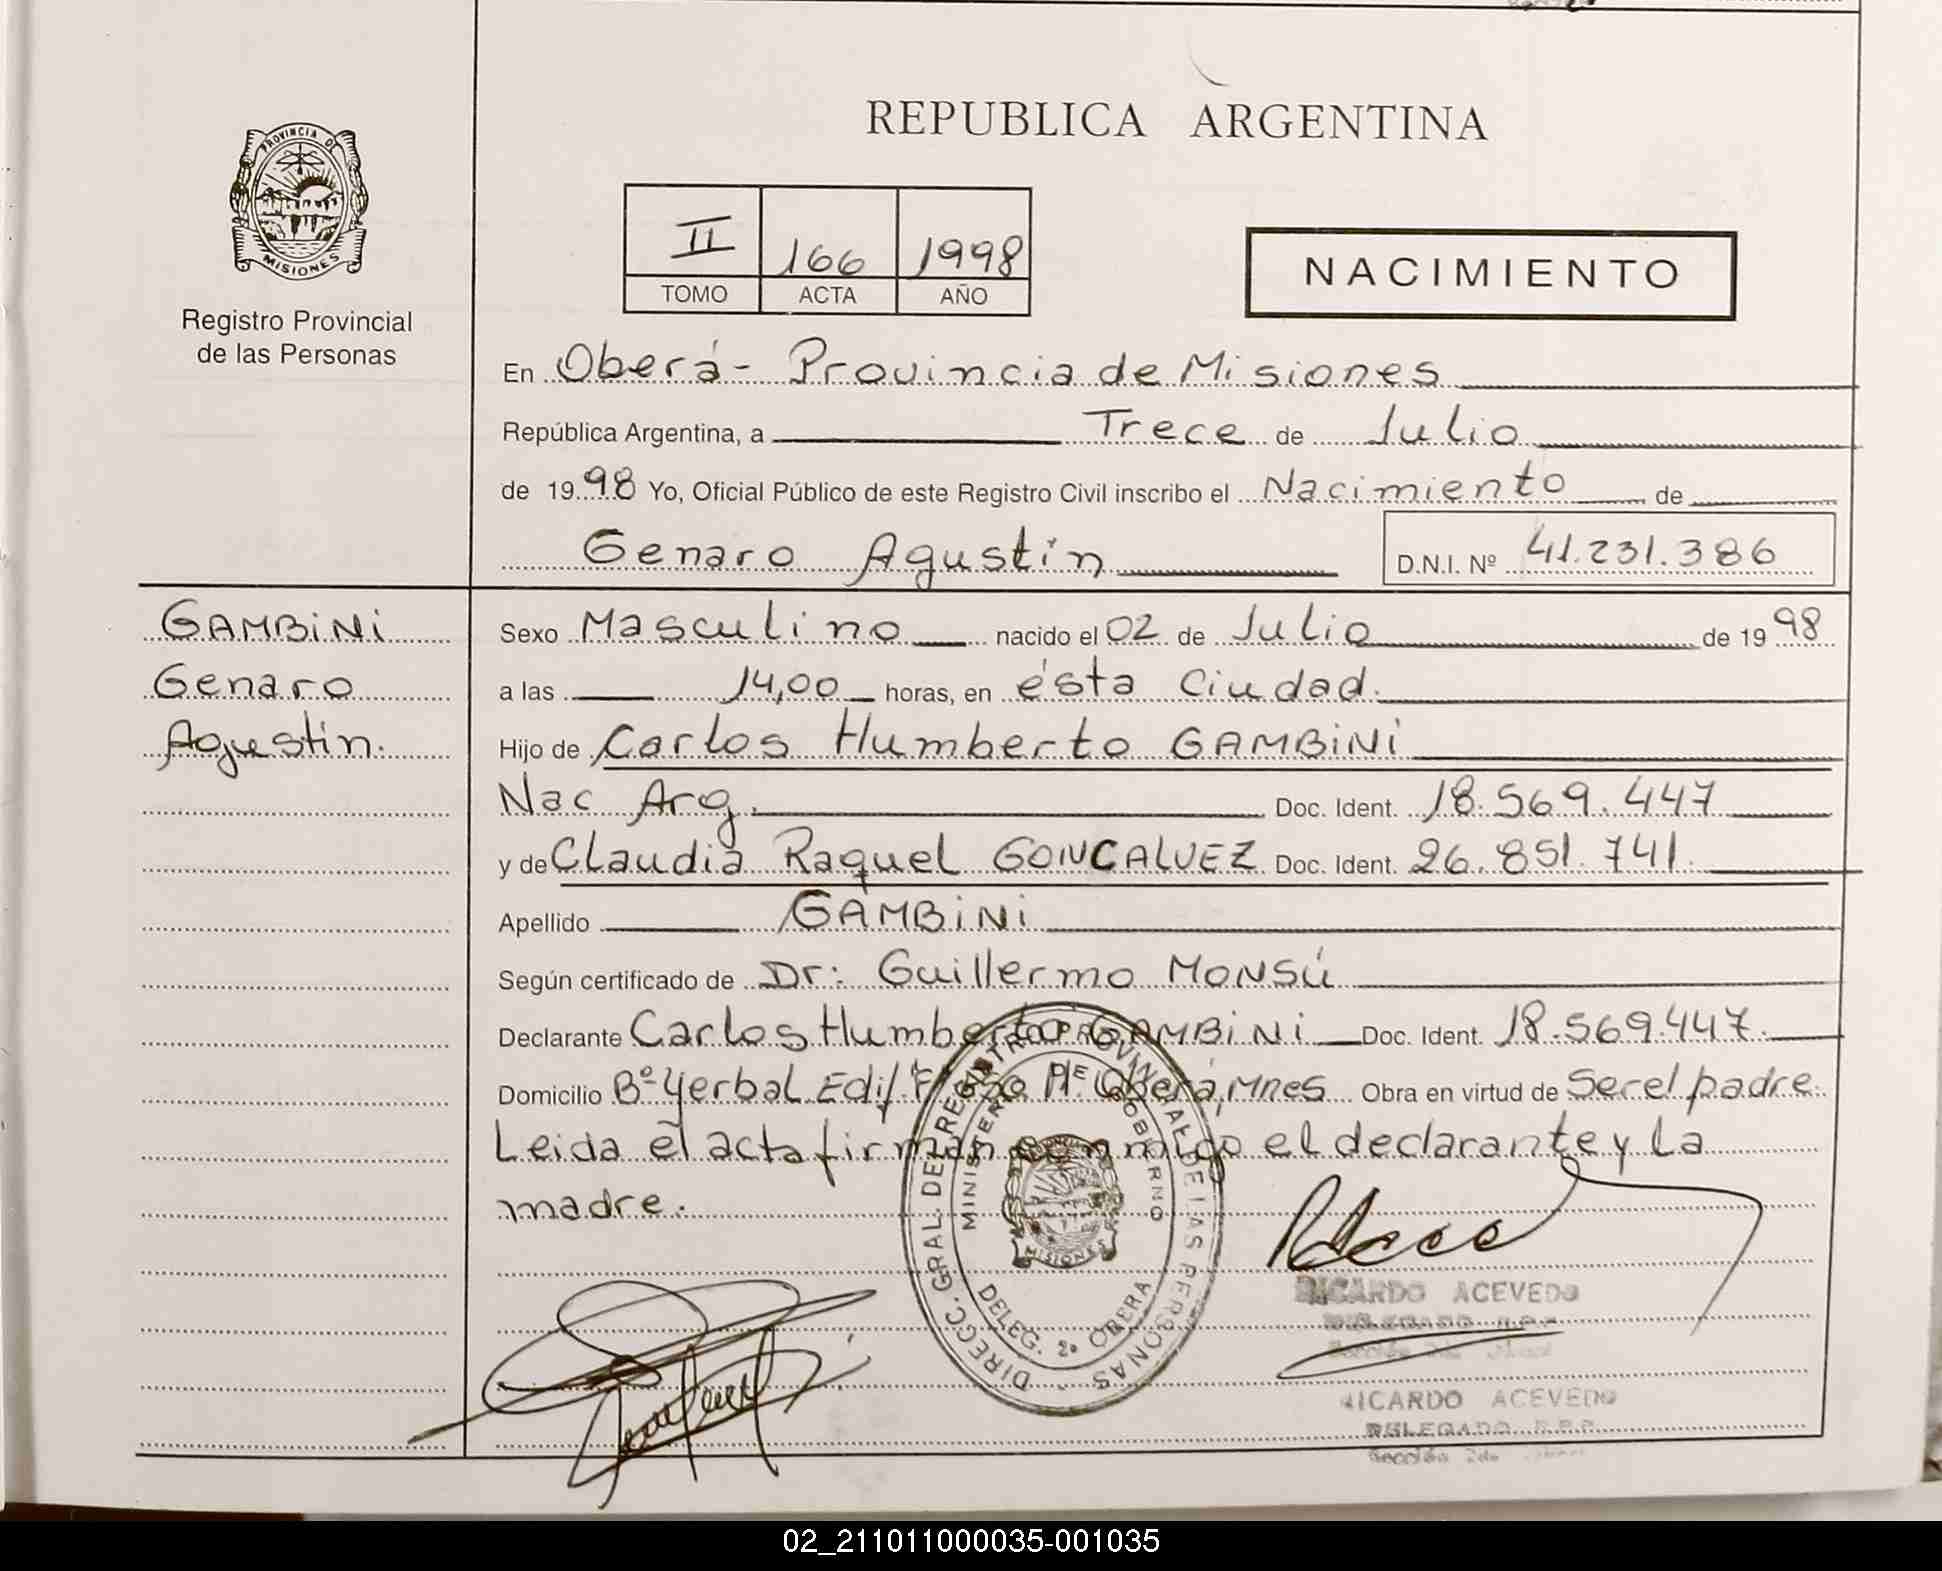 REPUBLICA ARGENTINA
PROVINCIA DE
MISIONES
Registro Provincial
de las Personas
II 166 1998
TOMO ACTA AÑO
NACIMIENTO
En Oberá - Provincia de Misiones
República Argentina, a Trece de Julio
de 1998 Yo, Oficial Público de este Registro Civil inscribo el Nacimiento de
Genaro Agustín D.N.I. Nº 41.231.386
GAMBiNi
Genaro
Agustín.
Sexo Masculino nacido el 02 de Julio de 1998
a las 14,00 horas, en ésta Ciudad.
Hijo de Carlos Humberto GAMBiNi
Nac Arg. Doc. Ident. 18.569.447
y de Claudia Raquel GONCALVEZ Doc. Ident. 26.851.741.
Apellido GAMBiNi
Según certificado de Dr: Guillermo MONSÚ
Declarante Carlos Humberto GAMBiNi Doc. Ident. 18.569.447.
Domicilio Bº Yerbal Edif. Oberá, Mnes Obra en virtud de Ser el padre.
Leida el acta firman conmigo el declarante y La
madre.
DIRECC. GRAL. DE REGISTRO PROVINCIAL DE LAS PERSONAS
MINISTERIO GOBIERNO
MISIONES
DELEG. 2ª OBERA
RICARDO ACEVEDO
DELEGADO R.P.P.
RICARDO ACEVEDO
DELEGADO R.P.P.
Sección 2da
02_211011000035-001035